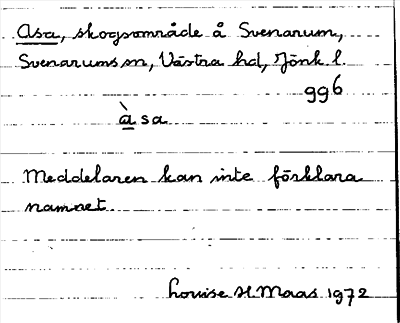 Asa, skogsområde å Svenarum,
Svenarums sn, Västra hd, Jönk l.
gg6
àsa
Meddelaren kan inte förklara
namnet.
Louise H. Maas 1972